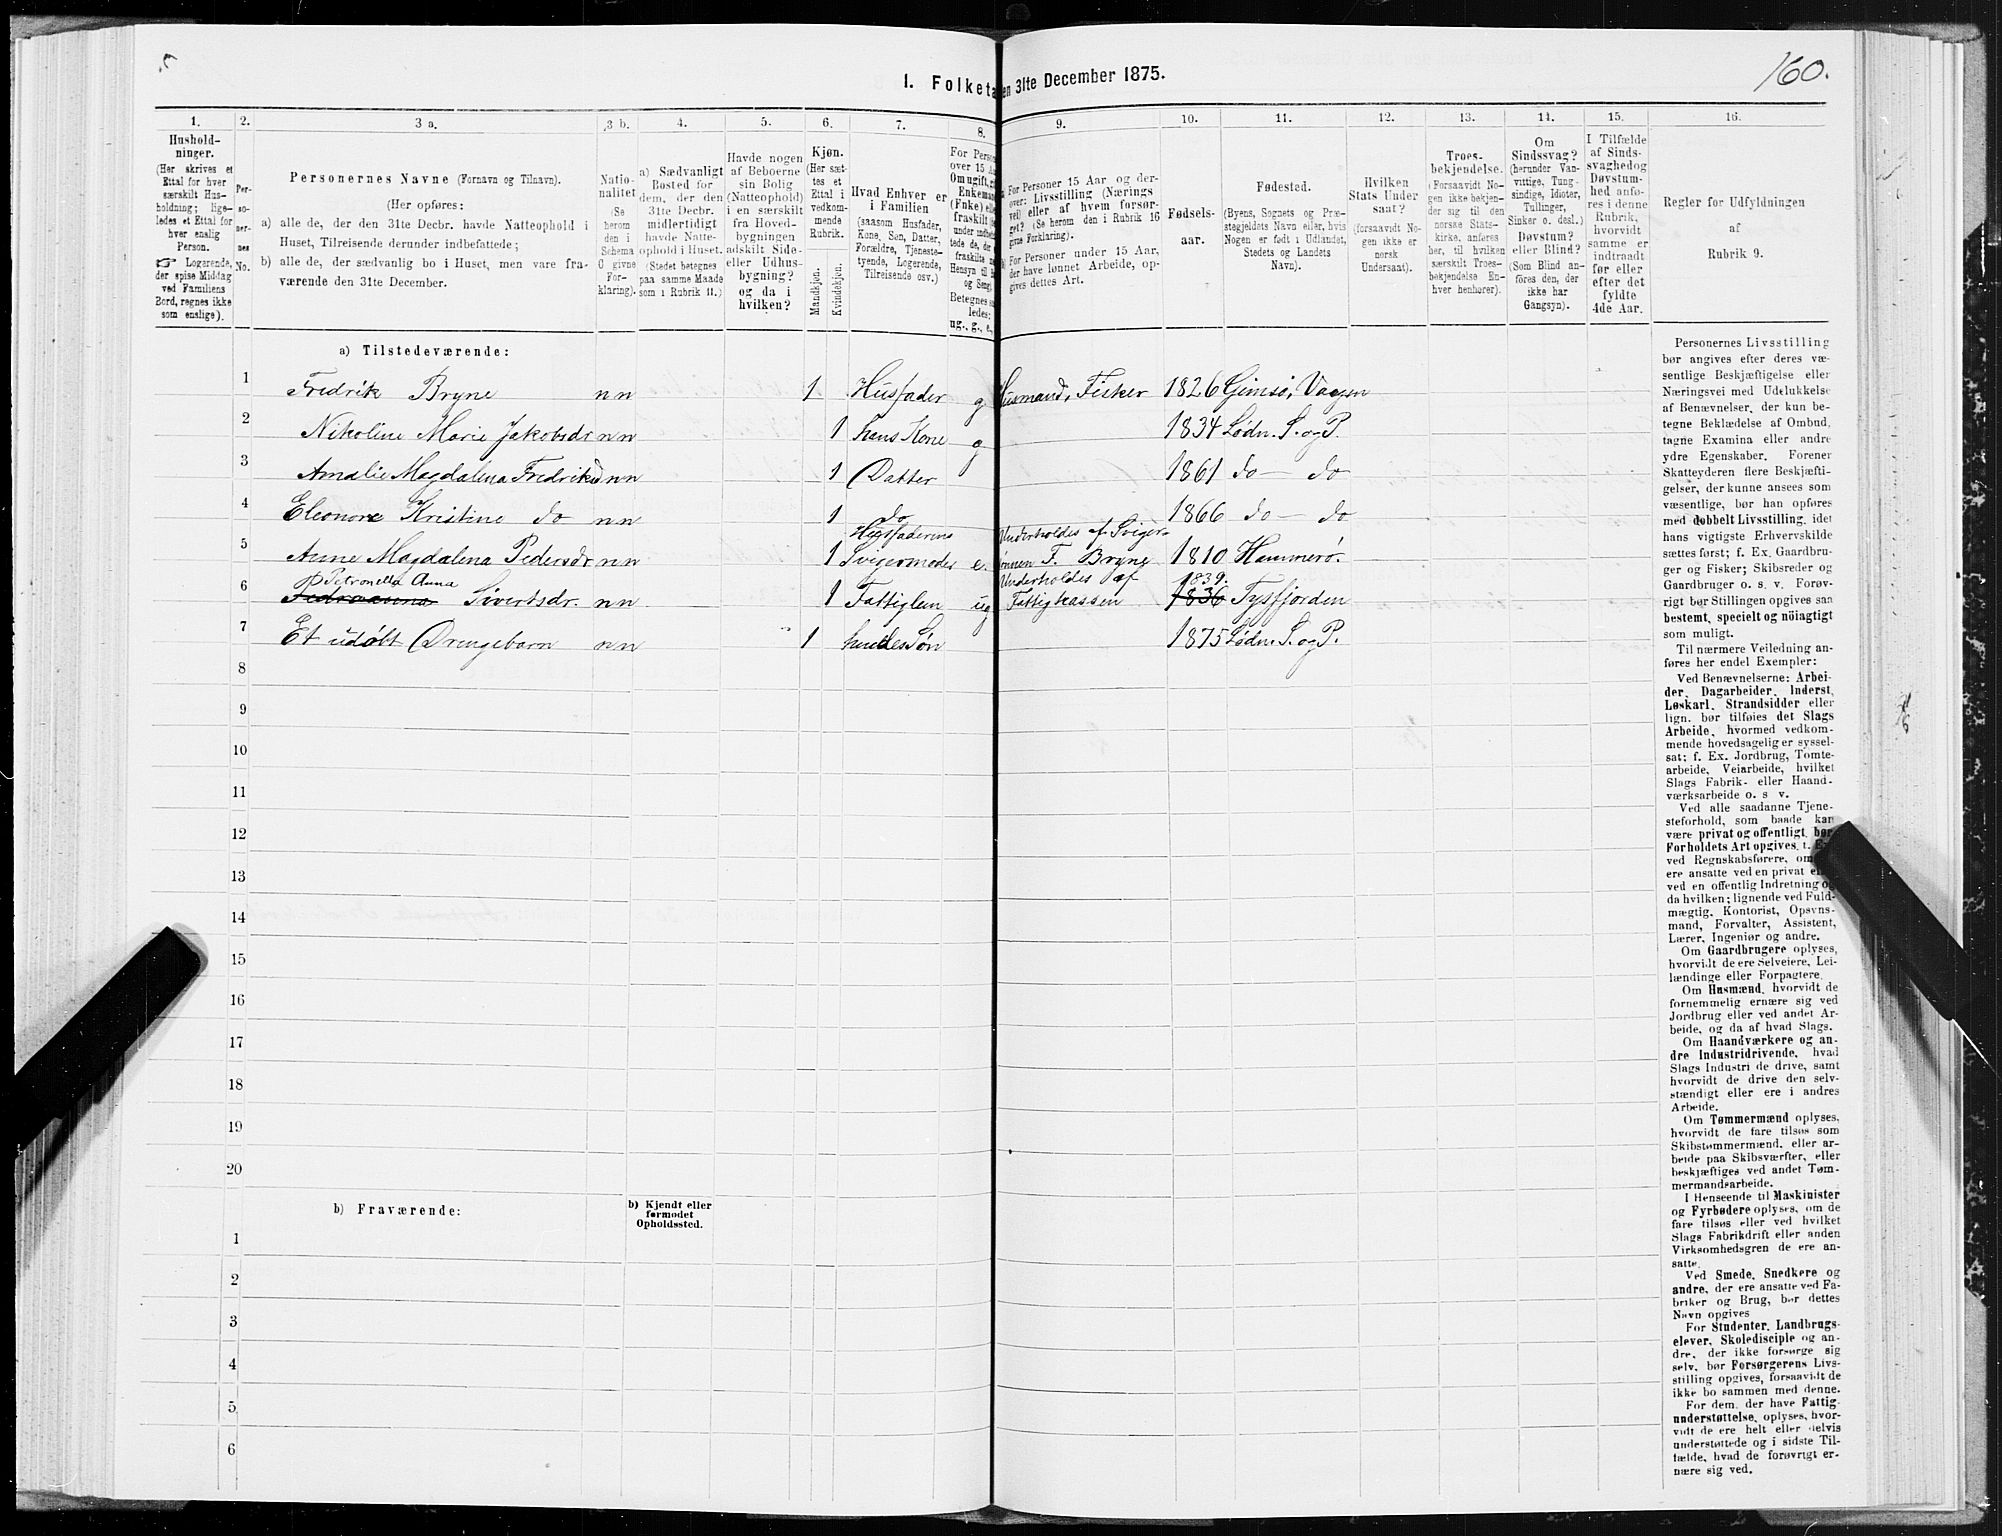 160.
I. Folketa
en 31te December 1875.
1.
2.
3 a.
3 b.
4.
5.
6.
7.
8.
9.
10.
11.
12.
13.
14.
15.
16.
Hushold-
ninger.
(Her skrives et
Ettal for hver
særskilt Hus-
holdning; lige-
ledes et Ettal for
hver enslig
Person.
☞ Logerende,
der spise Middag
ved Familiens
Bord, regnes ikke
som enslige).
Per-
so-
ner-
nes
No.
Personernes Navne (Fornavn og Tilnavn).
(Her opføres:
a) alle de, der den 31te Decbr. havde Natteophold i
Huset, Tilreisende derunder indbefattede;
b) alle de, der sædvanlig bo i Huset, men vare fra-
værende den 31te December.
Natio-
nalitet
(Se
herom
den i
Schema
O givne
For-
klaring).
a) Sædvanligt
Bosted for
dem, der den
31te Decbr.
midlertidigt
havde Natte-
ophold i Huset.
(Stedet betegnes
paa samme Maade
som i Rubrik 11.)
Havde nogen
af Beboerne
sin Bolig
(Natteophold)
i en særskilt
fra Hoved-
bygningen
adskilt Side-
eller Udhus-
bygning?
og da i
hvilken?
Kjøn.
(Her sæt-
tes et
Ettal i
vedkom-
mende
Rubrik.
Mandkjøn.
Kvindekjøn.
Hvad Enhver er
i Familien
(saasom Husfader,
Kone, Søn, Datter,
Forældre, Tjeneste-
tyende, Logerende,
Tilreisende osv.)
For Perso
over 15 A
Om ugift, g
Enkeman
(Fnke) el
fraskilt
under indbef
tede de, der
fraskilte
Hensyn til
og Seng.
Betegnes s
ledes:
ug., g., e.,
For Personer 15 Aar og der-
over: Livsstilling (Nærings
vei) eller af hvem forsør-
get? (Se herom den i Rubrik 16
givne Forklaring).
For Personer under 15 Aar,
der have lønnet Arbeide, op-
gives dettes Art.
Fødsels-
aar.
Fødested.
(Byens, Sognets og Præ-
stegjeldets Navn eller, hvis
Nogen er født i Udlandet,
Stedets og Landets
Navn).
Hvilken
Stats Under
saat?
(forsaavidt No-
gen ikke er
norsk
Undersaat).
Troes-
bekjendelse.
(Forsaavidt No-
gen ikke bekjen-
der sig til den
norske Stats-
kirke, anføres
her, til hvilken
særskilt Troes-
bekjendelse En-
hver henhører).
Om
Sindssvag?
(herunder Van-
vittige, Tung-
sindige, Idioter,
Tullinger,
Sinker o. desl.)
Døvstum?
eller Blind?
(Som Blind an-
føres den, der
ikke har
Gangsyn).
I Tilfælde
af Sinds-
svaghed og
Døvstum-
hed anfø-
res i denne
Rubrik,
hvorvidt
samme er
indtraadt
før eller
efter det
fyldte
4de Aar.
Regler for Udfyldningen
af
Rubrik 9.
a) Tilstedeværende:
1 Fredrik Bryne nn 1 Husfader g Husmand, Fisker 1826 Gimsø, Vaagen
2 Nikoline Marie Jakobsdr nn 1 hans Kone g 1834 Lødn. S. og P.
3 Amalie Magdalena Fredriksd nn 1 Datter 1861 do — do
4 Eleonore Kristine do nn 1 do 1866 do — do
Husfaderens Underholdes af Sviger-
5 Anne Magdalena Pedersdr nn 1 Svigermoder e. sønnen F. Bryne 1810 Hammerø.
Petronella Anna Underholdes af 1839.
6 Sivertsdr. nn 1 Fattiglem ug Fattigkassen 1836 Tysfjorden
7 Et udøbt Drengebarn nn 1 hendes Søn 1875 Lødn. S. og P.
8
9
10
11
12
13
14
15
16
17
18
19
20
b) Fraværende:
b) Kjendt eller
formodet
Opholdssted.
1
2
3
4
5
6
Personernes Livsstilling
bør angives efter deres væ-
sentlige Beskjæftigelse eller
Næringsvei med Udelukkelse
af Benævnelser, der kun be-
tegne Beklædelse af Ombud,
tagne Examina eller andre
ydre Egenskaber. Forener
Skatteyderen flere Beskjæfti-
gelser, der kunne ansees som
væsentlige, bør han opføres
med dobbelt Livsstilling, idet
hans vigtigste Erhvervskilde
sættes først; f. Ex. Gaardbru-
ger og Fisker; Skibsreder og
Gaardbruger o. s. v. Forøv-
rigt bør Stillingen opgives saa
bestemt, specielt og nøiagtigt
som muligt.
Til nærmere Veiledning an-
føres her endel Exempler:
Ved Benævnelserne: Arbei-
der, Dagarbeider, Inderst,
Løskarl, Strandsidder eller
lign. bør tilføies det Slags
Arbeide, hvormed vedkom-
mende hovedsagelig er syssel-
sat; f. Ex. Jordbrug, Tomte-
arbeide, Veiarbeide, hvilket
Slags Fabrik- eller Haand-
værksarbeide o. s v.
Ved alle saadanne Tjene-
steforhold, som baade kan
være privat og offentligt, bør
Forholdets Art opgives, f. Ex
ved Regnskabsførere, om
ere ansatte ved en privat el
ved en offentlig Indretning og
da hvilken; lignende ved Fuld-
mægtig, Kontorist, Opsyns-
mand, Forvalter, Assistent,
Lærer, Ingeniør og andre.
Om Gaardbrugere oplyses,
hvorvidt de ere Selveiere, Lei-
lændinge eller Forpagtere.
Om Husmænd, hvorvidt de
fornemmelig ernære sig ved
Jordbrug eller ved andet Ar-
beide, og da af hvad Slags.
Om Haandværkere og an-
dre Industridrivende, hvad
Slags Industri de drive, samt
hvorvidt de drive den selv-
stændigt eller ere i andres
Arbeide.
Om Tømmermænd oplyses,
hvorvidt de fare tilsøs som
Skibstømmermænd, eller ar-
beide paa Skibsværfter, eller
beskjæftiges ved andet Tøm-
mermandsarbeide.
I Henseende til Maskinister
og Fyrbødere oplyses, om de
fare tilsøs eller ved hvilket
Slags Fabrikdrift eller anden
Virksomhedsgren de ere an-
satte.
Ved Smede, Snedkere og
andre, der ere ansatte ved Fa-
briker og Brug, bør dettes
Navn opgives
For Studenter, Landbrugs-
elever, Skoledisciple og an-
dre, der ikke forsørge sig
selv, bør Forsørgerens Livs-
stilling opgives, forsaavidt de
ikke bo sammen med denne.
For dem, der have Fattig-
understøttelse, oplyses, hvor-
vidt de ere helt eller delvis
understøttede og i sidste Til-
fælde, hvad de forøvrigt er-
nære sig ved.